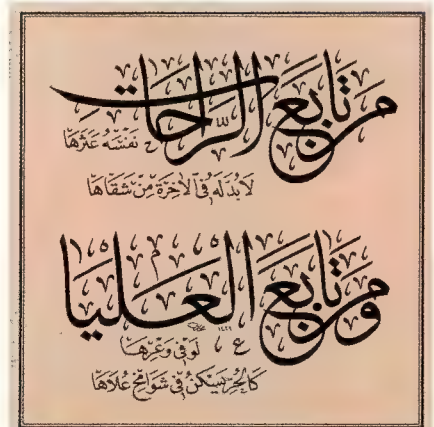 من تابع الراحات
نفسه عثرها
لابد له في الآخرة من شقاها
ومن تابع العليا
لو في وعرها
كالحر يسكن في شوامخ علاها
١٤٢٦